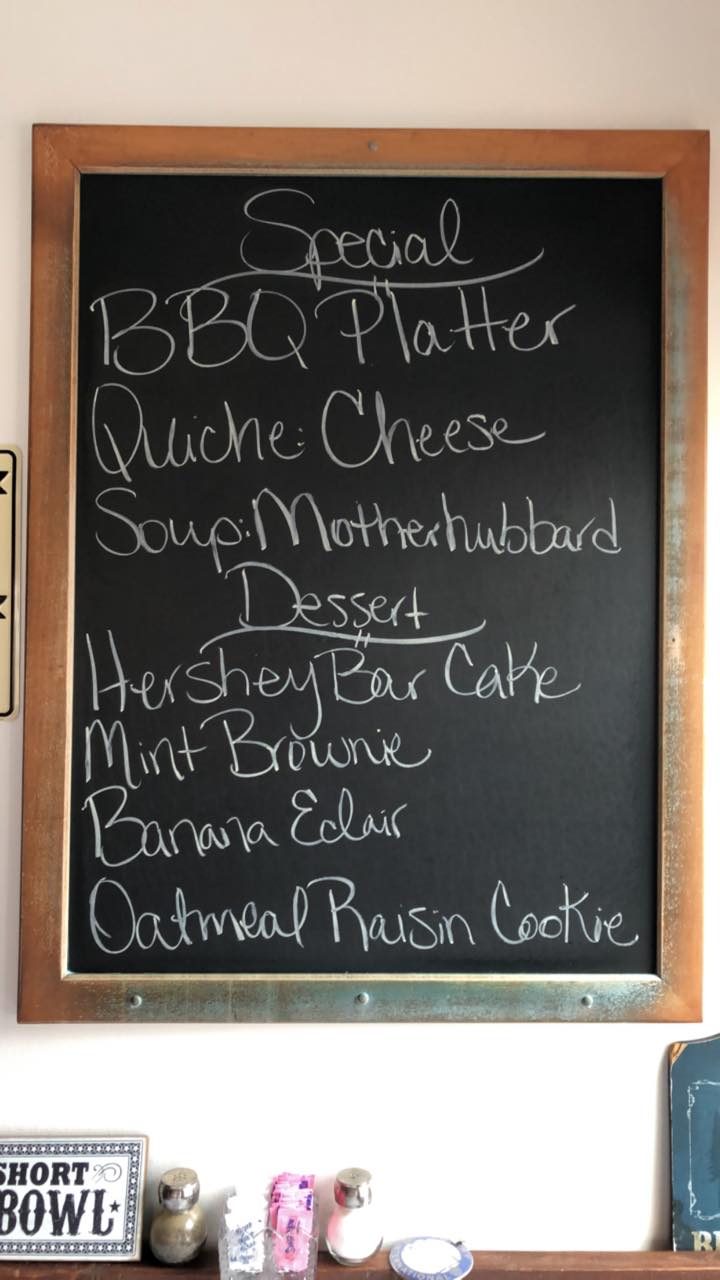 Special
BBQ Platter
Quiche: Cheese
Soup: Motherhubbard
Dessert
Hershey Bar Cake
Mint Brownie
Banana Eclair
Oatmeal Raisin Cookie
SHORT
BOWL